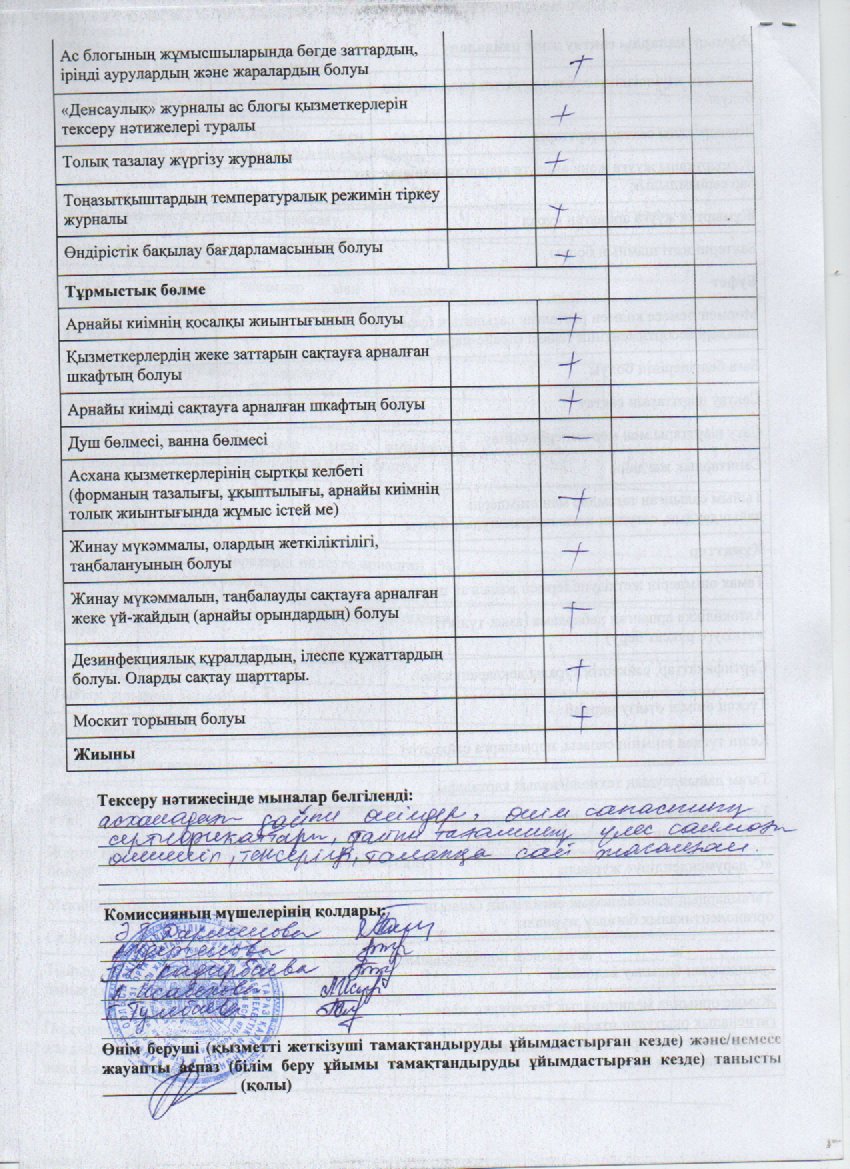 Ас блогының жұмысшыларында бөгде заттардың,
іріңді аурулардың және жаралардың болуы +
«Денсаулық» журналы ас блогы қызметкерлерін
тексеру нәтижелері туралы +
Толық тазалау жүргізу журналы +
Тоңазытқыштардың температуралық режимін тіркеу
журналы +
Өндірістік бақылау бағдарламасының болуы +
Тұрмыстық бөлме
Арнайы киімнің қосалқы жиынтығының болуы +
Қызметкерлердің жеке заттарын сақтауға арналған
шкафтың болуы +
Арнайы киімді сақтауға арналған шкафтың болуы +
Душ бөлмесі, ванна бөлмесі
Асхана қызметкерлерінің сыртқы келбеті
(форманың тазалығы, ұқыптылығы, арнайы киімнің
толық жиынтығында жұмыс істей ме) +
Жинау мүкәммалы, олардың жеткіліктілігі,
таңбалануының болуы +
Жинау мүкәммалын, таңбалауды сақтауға арналған
жеке үй-жайдың (арнайы орындардың) болуы +
Дезинфекциялық құралдардың, ілеспе құжаттардың
болуы. Оларды сақтау шарттары. +
Москит торының болуы +
Жиыны
Тексеру нәтижесінде мыналар белгіленді:
асханадағы дайын өнімдер, өнім сапасының
сертификаттары, дайын тағамның үлес салмағы
өлшеніп, тексерілді, талапқа сай жасалған.
Комиссияның мүшелерінің қолдары:
Өнім беруші (қызметті жеткізуші тамақтандыруды ұйымдастырған кезде) және/немесе
жауапты аспаз (білім беру ұйымы тамақтандыруды ұйымдастырған кезде) танысты
(қолы)